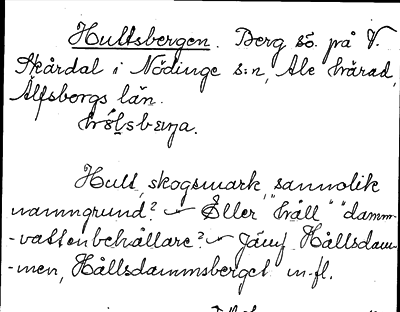 Hultsbergen. Berg sö. på V.
Skårdal i Nödinge s:n, Ale härad,
Älfsborgs län.

Hult, skogsmark, sannolik
namngrund? Eller "håll" "damm-
-vattenbehållare? Jämf. Hållsdam-
-men, Hållsdammsberget m.fl.